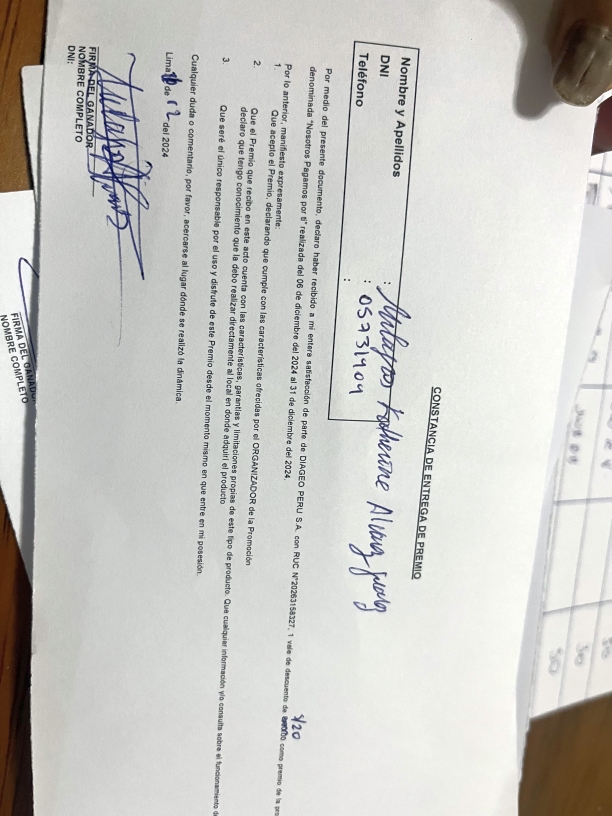 CONSTANCIA DE ENTREGA DE PREMIO
Nombre y Apellidos : Milagros Katherine Alvarez
DNI : 05731404
Teléfono :
Por medio del presente documento, declaro haber recibido a mi entera satisfacción de parte de DIAGEO PERU S.A. con RUC N°20263158327, 1 vale de descuento de S/20 como premio de la pro
denominada "Nosotros Pagamos por ti" realizada del 06 de diciembre del 2024 al 31 de diciembre del 2024.
Por lo anterior, manifiesto expresamente:
1. Que acepto el Premio, declarando que cumple con las características ofrecidas por el ORGANIZADOR de la Promoción
2. Que el Premio que recibo en este acto cuenta con las características, garantías y limitaciones propias de este tipo de producto. Que cualquier información y/o consulta sobre el funcionamiento d
declaro que tengo conocimiento que la debo realizar directamente al local en donde adquirí el producto
3. Que seré el único responsable por el uso y disfrute de este Premio desde el momento mismo en que entre en mi posesión.
Cualquier duda o comentario, por favor, acercarse al lugar dónde se realizó la dinámica.
Lima de 12 del 2024
FIRMA DEL GANADOR
NOMBRE COMPLETO
DNI:
FIRMA DEL GANADOR
NOMBRE COMPLETO
50
50